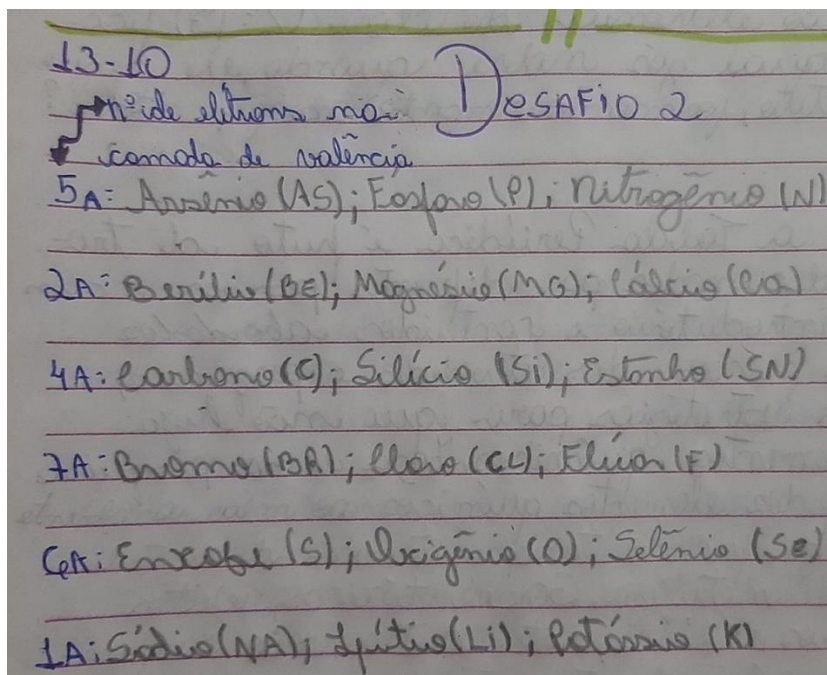 13-10
DESAFiO 2
nº de elétrons na
camada de valência
5A: Arsênio (AS); Fósforo (P); nitrogênio (N)
2A: Berílio (BE); Magnésio (MG); Cálcio (CA)
4A: Carbono (C); Silício (Si); Estanho (SN)
7A: Bromo (BR); Cloro (CL); Flúor (F)
6A: Enxofre (S); Oxigênio (O); Selênio (Se)
1A: Sódio (NA); Lítio (Li); Potássio (K)